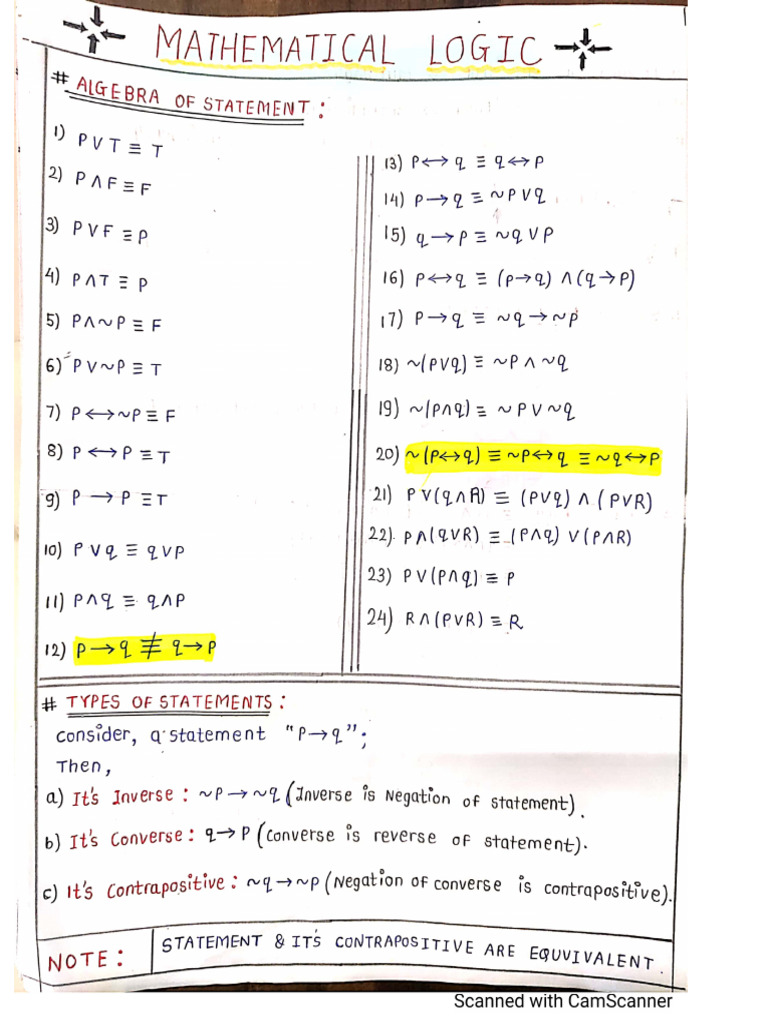 MATHEMATICAL LOGIC
# ALGEBRA OF STATEMENT :
1) P∨T ≡ T
2) P∧F ≡ F
3) P∨F ≡ P
4) P∧T ≡ P
5) P∧~P ≡ F
6) P∨~P ≡ T
7) P↔~P ≡ F
8) P↔P ≡ T
9) P→P ≡ T
10) P∨q ≡ q∨P
11) P∧q ≡ q∧P
12) P→q ≢ q→P
13) P↔q ≡ q↔P
14) P→q ≡ ~P∨q
15) q→P ≡ ~q∨P
16) P↔q ≡ (P→q) ∧ (q→P)
17) P→q ≡ ~q→~P
18) ~(P∨q) ≡ ~P∧~q
19) ~(P∧q) ≡ ~P∨~q
20) ~(P↔q) ≡ ~P↔q ≡ ~q↔P
21) P∨(q∧R) ≡ (P∨q) ∧ (P∨R)
22). P∧(q∨R) ≡ (P∧q) ∨ (P∧R)
23) P∨(P∧q) ≡ P
24) R∧(P∨R) ≡ R
# TYPES OF STATEMENTS :
consider, a statement "P→q";
Then,
a) It's Inverse : ~P→~q (Inverse is Negation of statement).
b) It's Converse : q→P (Converse is reverse of statement).
c) It's Contrapositive : ~q→~P (Negation of converse is contrapositive).
NOTE : STATEMENT & IT'S CONTRAPOSITIVE ARE EQUVIVALENT.
Scanned with CamScanner